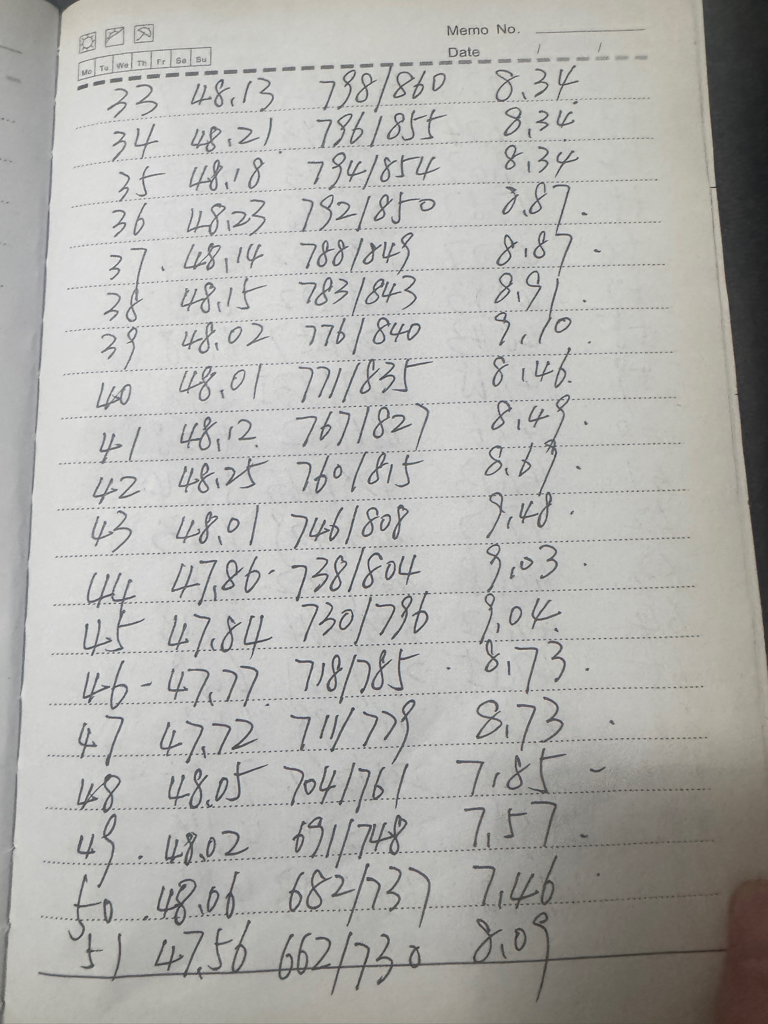 Memo No.
Mo Tu We Th Fr Sa Su
Date / /
33 48.13 798/860 8.34
34 48.21 796/855 8.34
35 48.18 794/854 8.34
36 48.23 792/850 8.87.
37. 48.14 788/849 8.87.
38 48.15 783/843 8.91.
39 48.02 776/840 9.10.
40 48.01 771/835 8.46.
41 48.12. 767/827 8.49.
42 48.25 760/815 8.69.
43 48.01 746/808 9.48.
44 47.86. 738/804 9.03.
45 47.84 730/796 9.04.
46 - 47.77. 718/785 8.73.
47 47.72 711/779 8.73.
48 48.05 704/761 7.85 -
49. 48.02 691/748 7.57.
50 .48.06 682/737 7.46
51 47.56 662/730 8.09